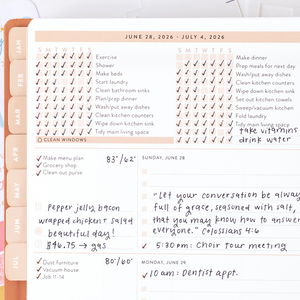 JUNE 28, 2026 - JULY 4, 2026
S M T W T F S
Exercise
Shower
Make beds
Start laundry
Clean bathroom sinks
Plan/prep dinner
Wash/put away dishes
Clean kitchen counters
Wipe down kitchen sink
Tidy main living space
CLEAN WINDOWS
S M T W T F S
Make dinner
Prep meals for next day
Wash/put away dishes
Clean kitchen counters
Wipe down kitchen sink
Set out kitchen towels
Sweep/vacuum kitchen
Fold laundry
Tidy main living space
take vitamins
drink water
JAN
FEB
MAR
APR
MAY
JUN
JUL
Make menu plan
Grocery shop
Clean out purse
83°/62°
Pepper jelly bacon
wrapped chicken + salad
beautiful day!
$46.75 → gas
SUNDAY, JUNE 28
"Let your conversation be alway
full of grace, seasoned with salt,
that you may know how to answer
everyone." Colossians 4:6
5:30 pm: Choir tour meeting
Dust furniture
Vacuum house
Job 11-14
80°/60°
MONDAY, JUNE 29
10 am: Dentist appt.